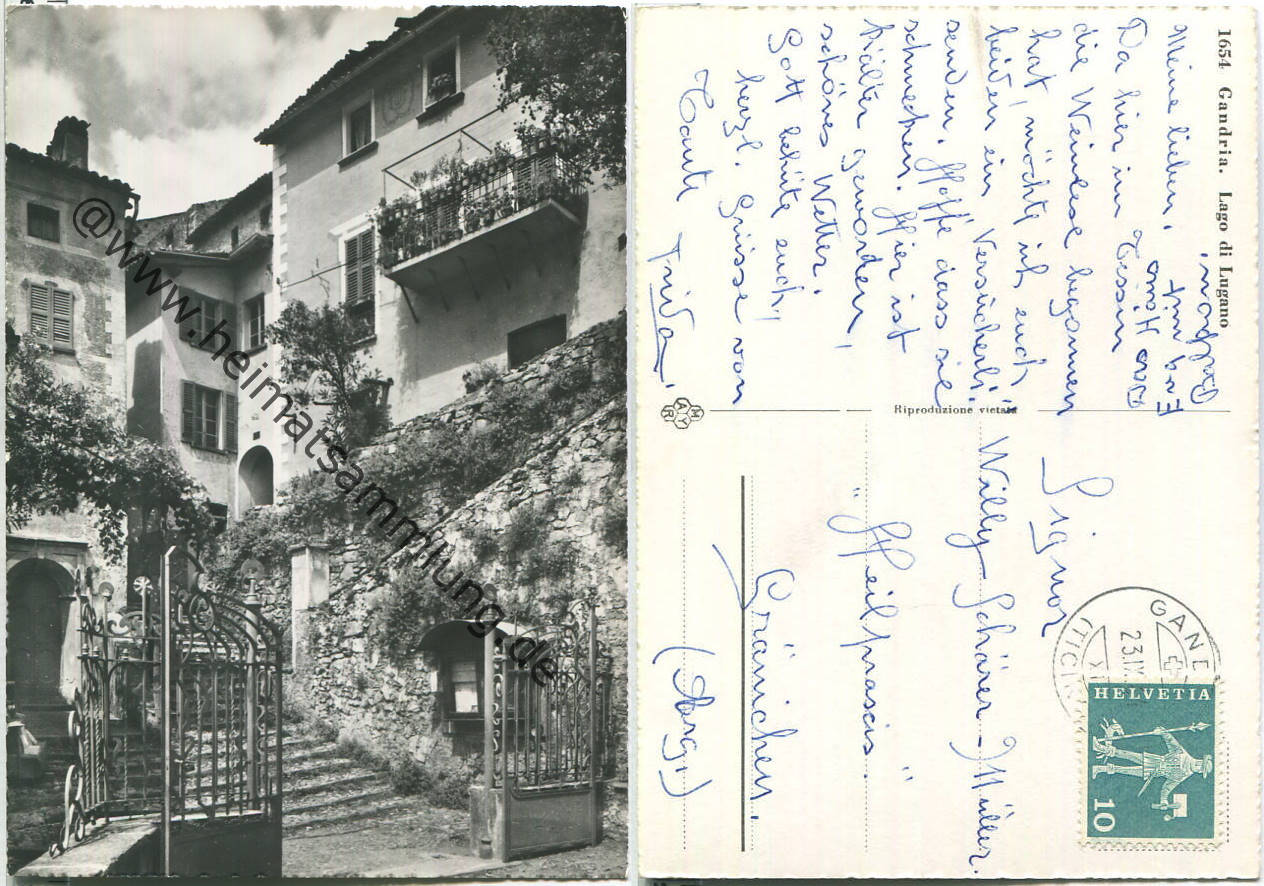 @www.heimatsammlung.de
1654 Gandria. Lago di Lugano
Meine lieben,
Da hier im Tessin
die Weinlese begonnen
hat, möchte ich euch
beiden ein "Versücherli"
senden. Hoffe dass sie
schmecken. Hier ist
kälter geworden,
schönes Wetter.
Gott behüte euch,
herzl. Grüsse von
Tante Frida,
Riproduzione vietata
Signor
Willy Schärer-Müller.
"Heilpraxis."
Gränichen.
(Aarg.)
GAND
(TICINO)
23.IX
HELVETIA
10